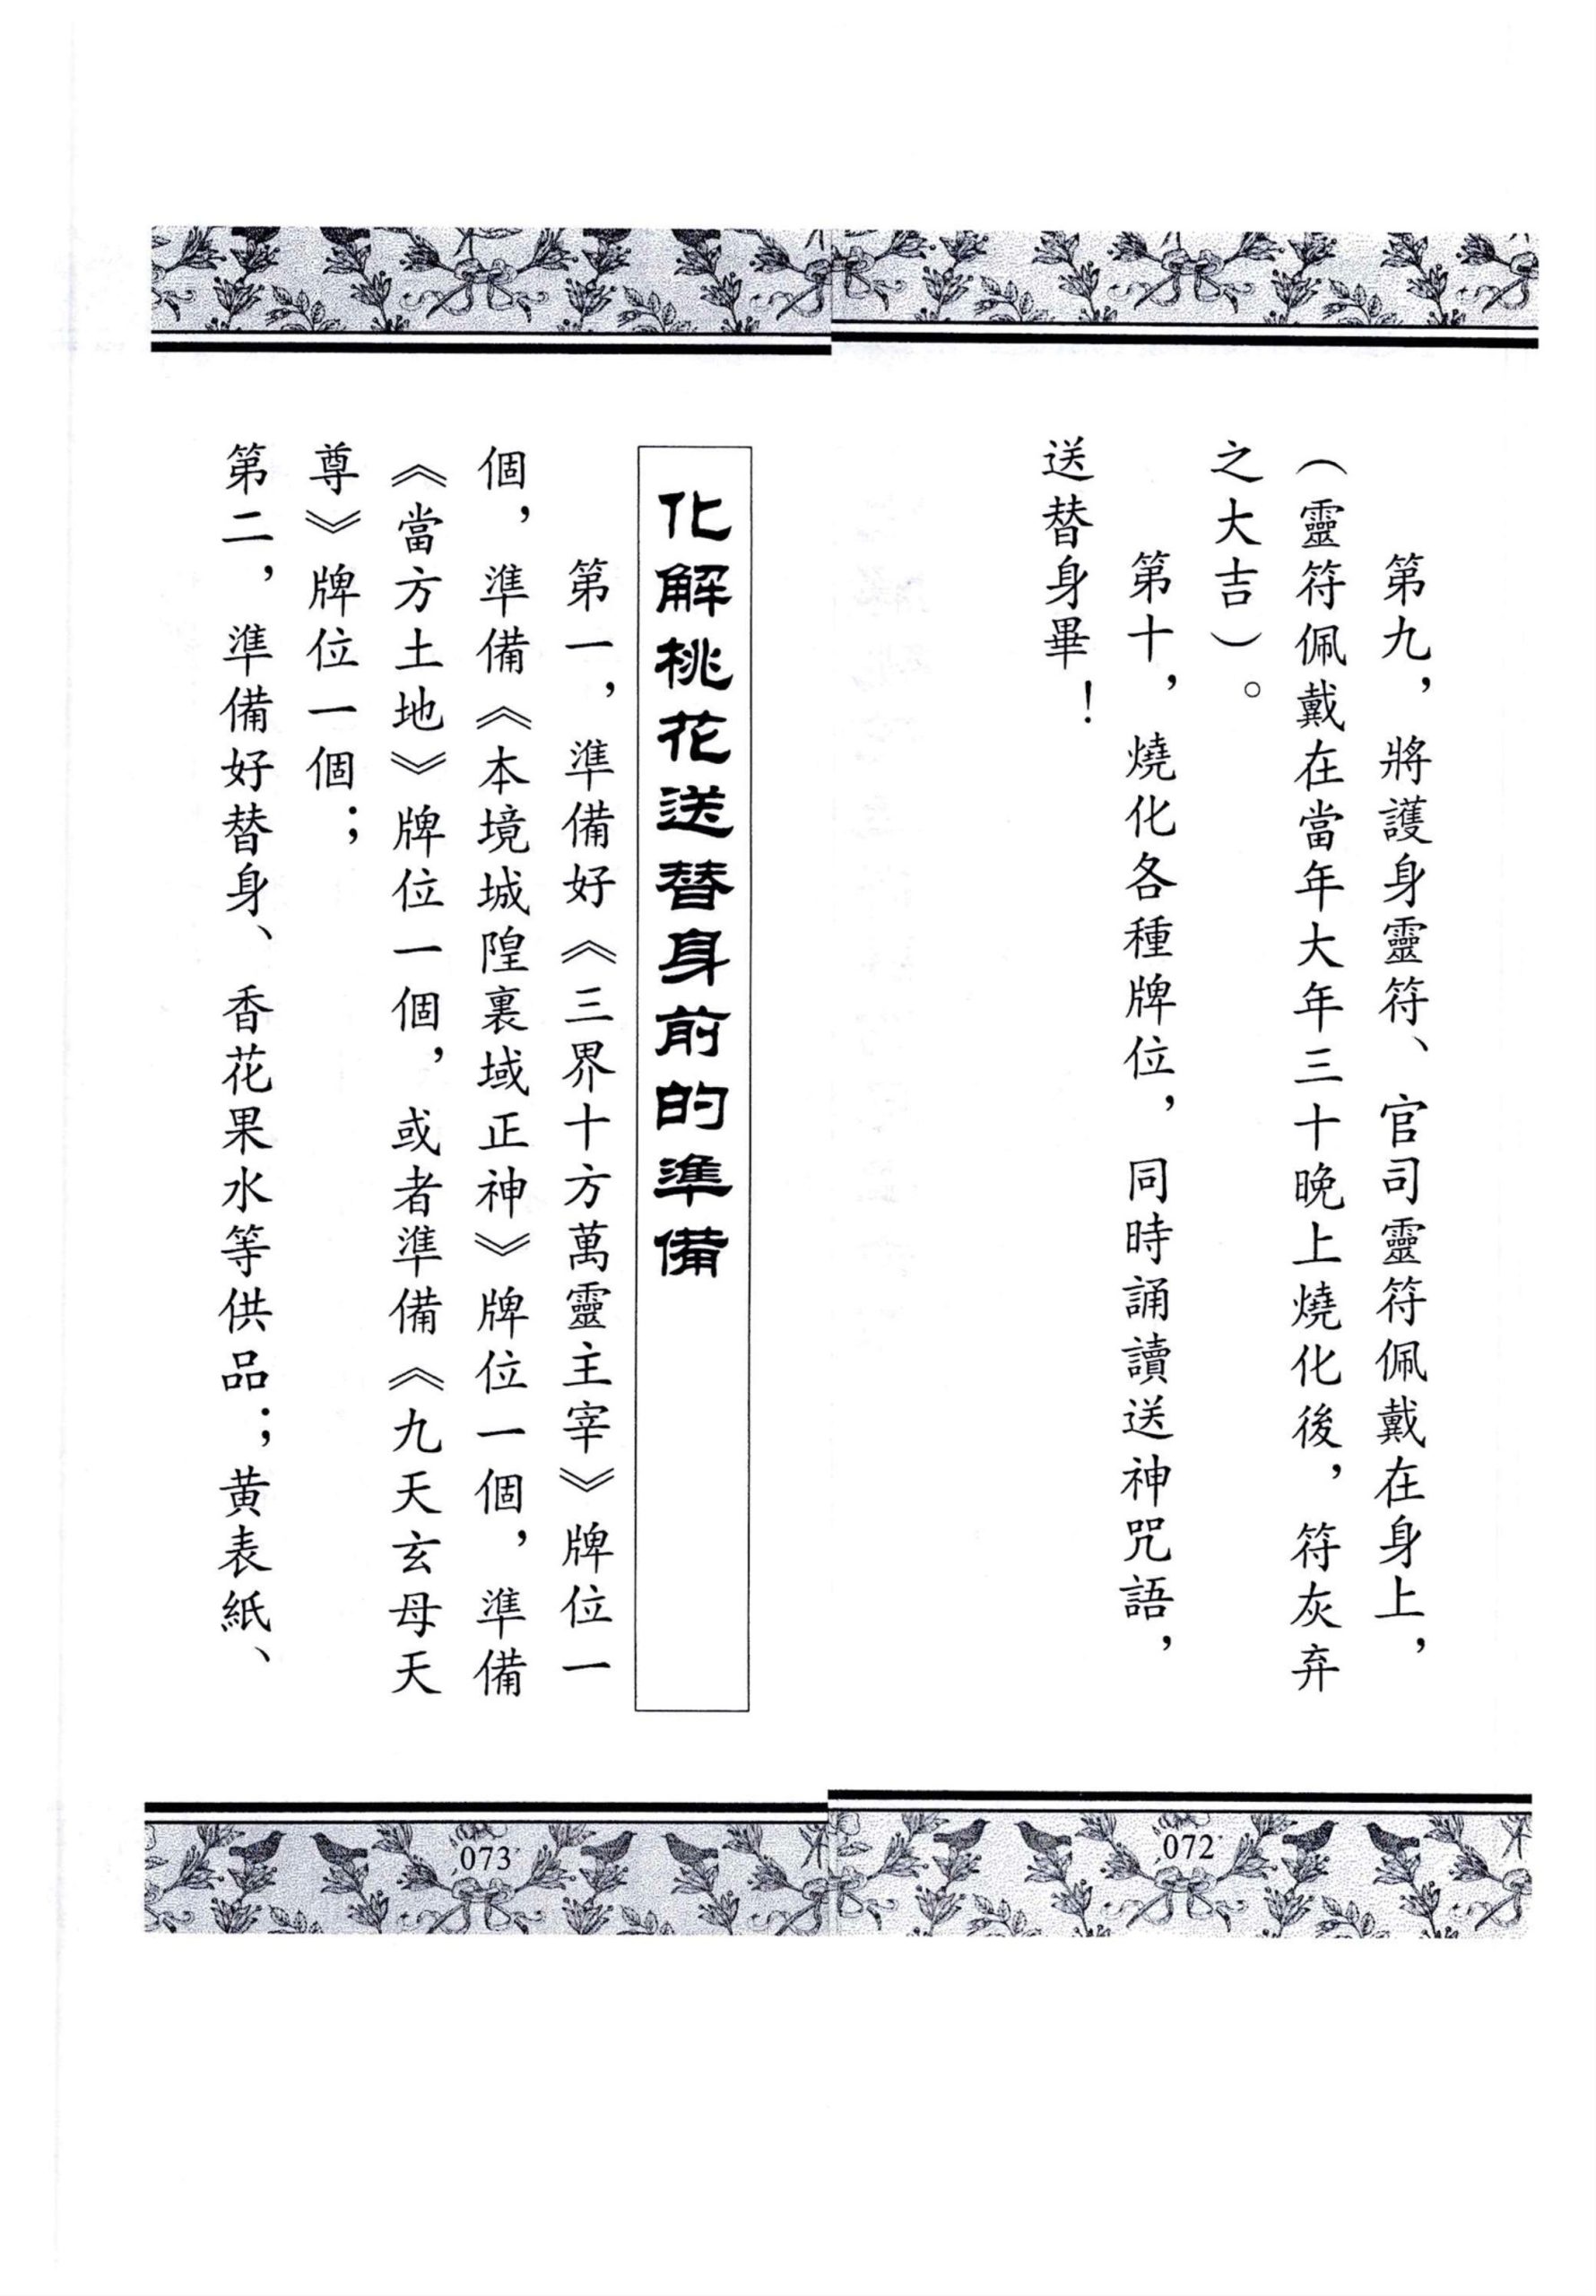 第九，將護身靈符、官司靈符佩戴在身上，
（靈符佩戴在當年大年三十晚上燒化後，符灰弃
之大吉）。
第十，燒化各種牌位，同時誦讀送神咒語，
送替身畢！
072
化解桃花送替身前的準備
第一，準備好《三界十方萬靈主宰》牌位一
個，準備《本境城隍裏域正神》牌位一個，準備
《當方土地》牌位一個，或者準備《九天玄母天
尊》牌位一個；
第二，準備好替身、香花果水等供品；黄表紙、
073